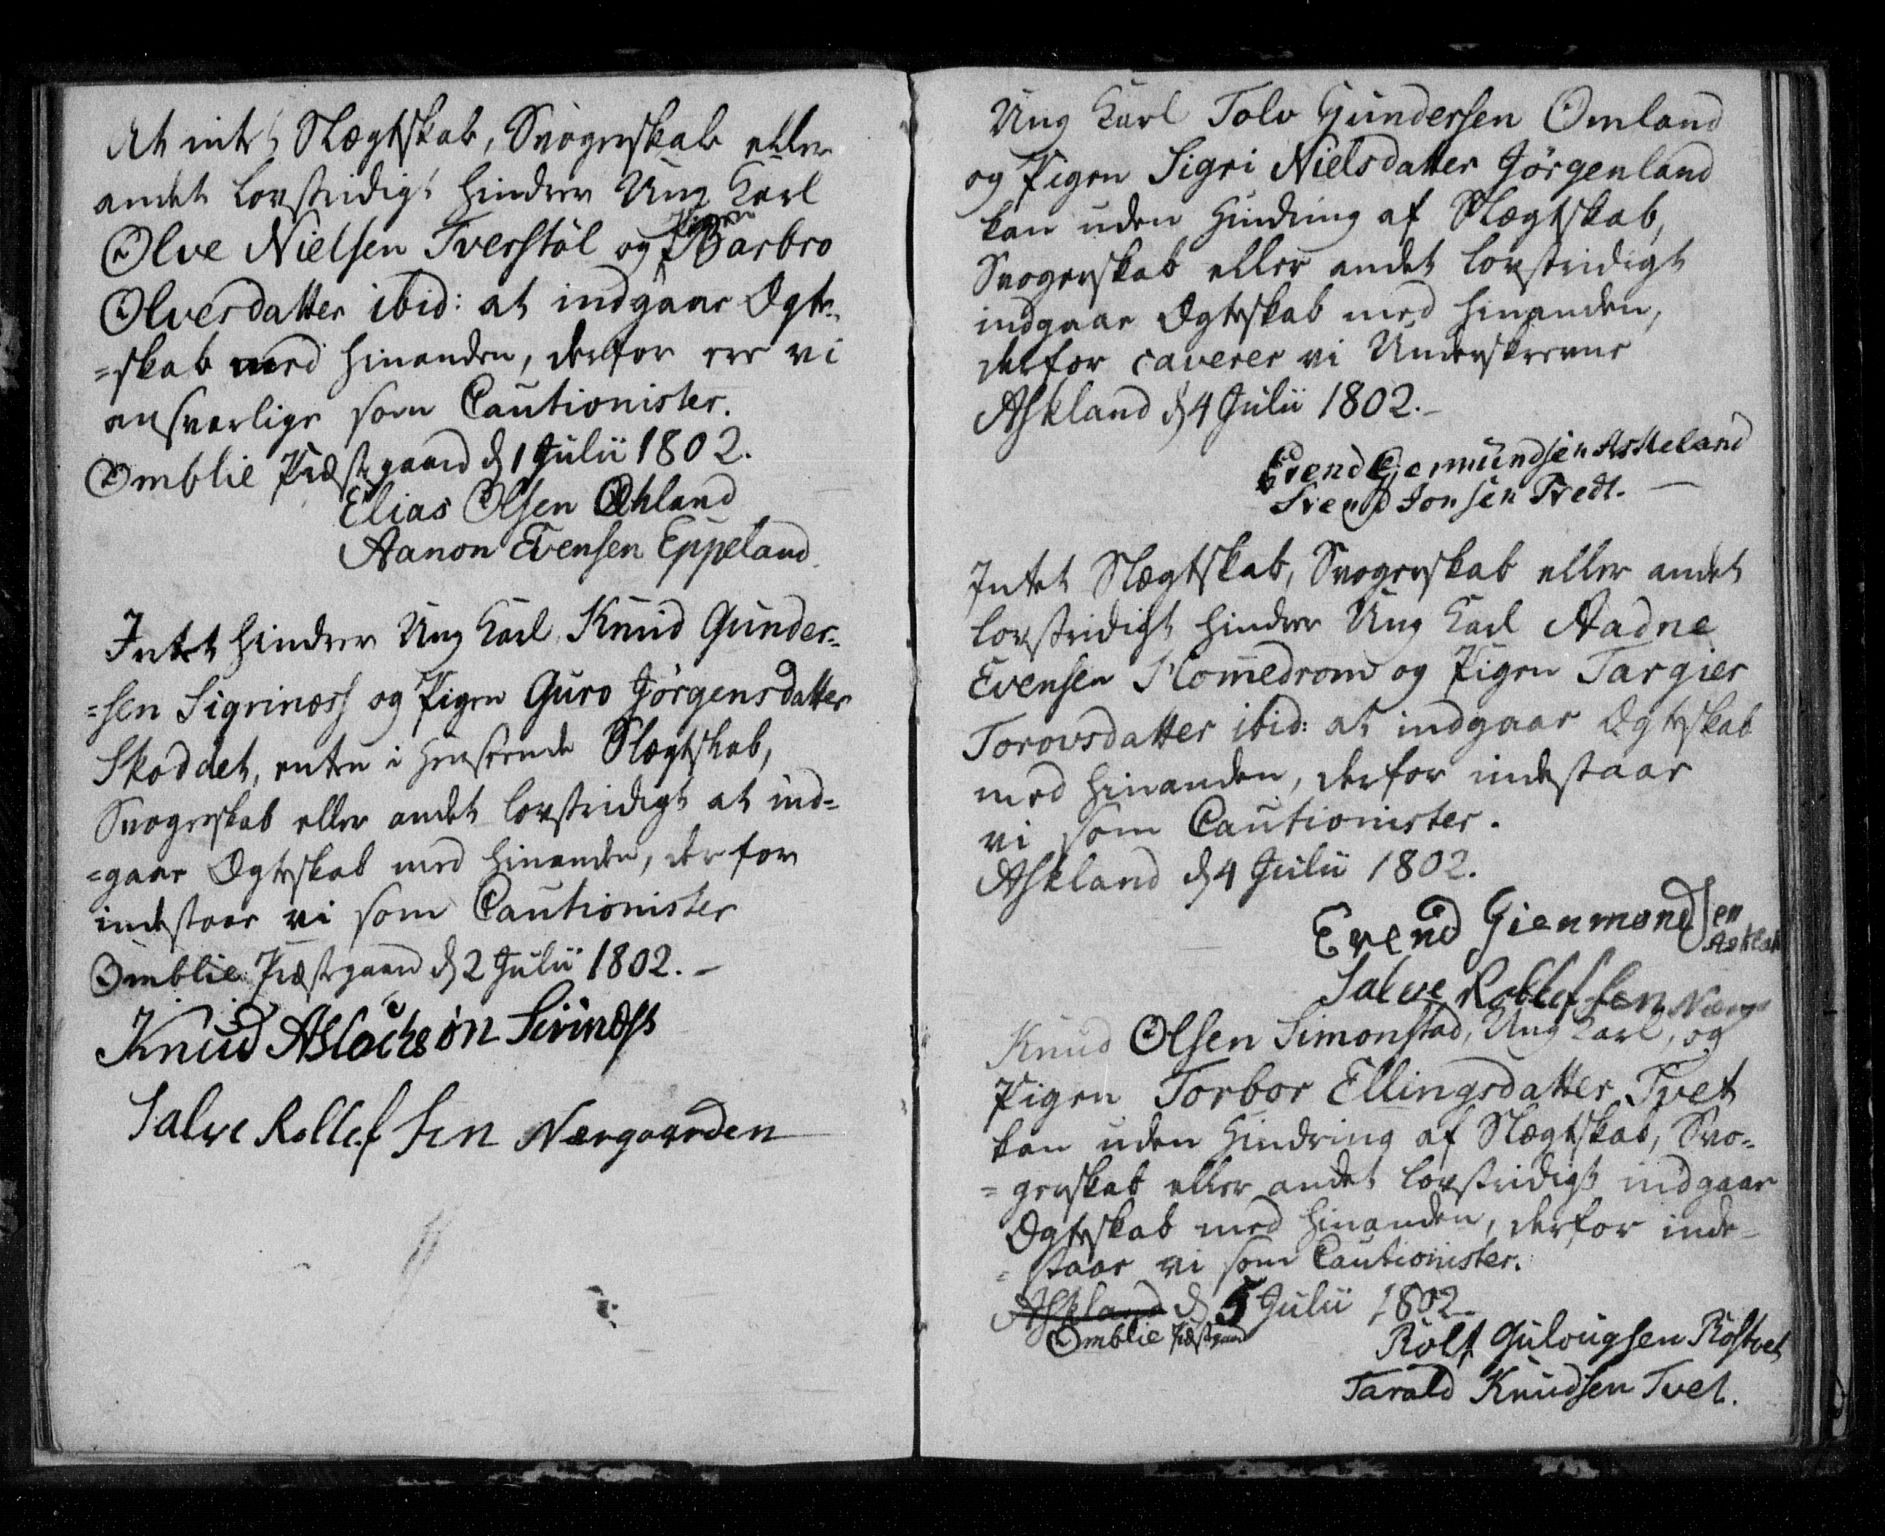 At intet Slægtskab, Svogerskab eller
andet lovstridigt hindrer Ung Karl
Olve Nielsen Tverstøl og Pigen Barbro
Olversdatter ibid: at indgaae Ægte-
=skab med hinanden, derfor ere vi
ansvarlige som Cautionister.
Omblie Præstegaard d 1 Julii 1802.
Elias Olsen Øhland
Aanon Evensen Eppeland.
Intet hindrer Ung Karl Knud Gunder-
=sen Sigrinæss og Pigen Guro Jørgensdatter
Skoddet, enten i Henseende Slægtskab,
Svogerskab eller andet lovstridigt at ind=
=gaae Ægteskab med hinanden, derfor
indestaae vi som Cautionister
Omblie Præstegaard d 2 Julii 1802. –
Knud Aslachsøn Sirinæss
Salve Rollefsen Nærgaarden
Ung Karl Tolv Gundersen Omland
og Pigen Sigri Nielsdatter Jørgenland
kan uden Hindring af Slægtskab,
Svogerskab eller andet lovstridigt
indgaae Ægteskab med hinanden,
derfor caverer vi Underskrevne
Askland d 4 Julii 1802. –
Evend Giermundsen Askeland
Svend Jonsen Tvedt. –
Intet Slægtskab, Svogerskab eller andet
lovstridigt hindrer Ung Karl Aadne
Evensen Homedrom og Pigen Targier
Torovsdatter ibid: at indgaae Ægteskab
med hinanden, derfor indestaae
vi som Cautionister.
Askland d 4 Julii 1802.
Evend Gienmondsen
Salve Rollefsen
Knud Olsen Simonstad, Ung Karl, og
Pigen Torbor Ellingsdatter Tvet
kan uden Hindring af Slægtskab, Svo-
=gerskab eller andet lovstridigt indgaae
Ægteskab med hinanden, derfor inde-
=staae vi som Cautionister.
Askland d 5 Julii 1802.
Omblie Præstegaard
Rolf Gulougsen Røstvet
Tarald Knudsen Tvet.